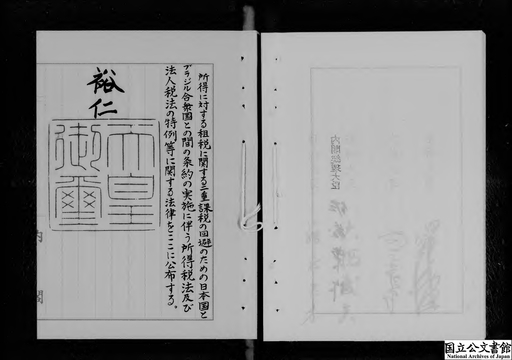 所得に対する租税に関する二重課税の回避のための日本国と
ブラジル合衆国との間の条約の実施に伴う所得税法及び
法人税法の特例等に関する法律をここに公布する。
裕仁
天皇
御璽
内閣
内閣総理大臣
国立公文書館
National Archives of Japan